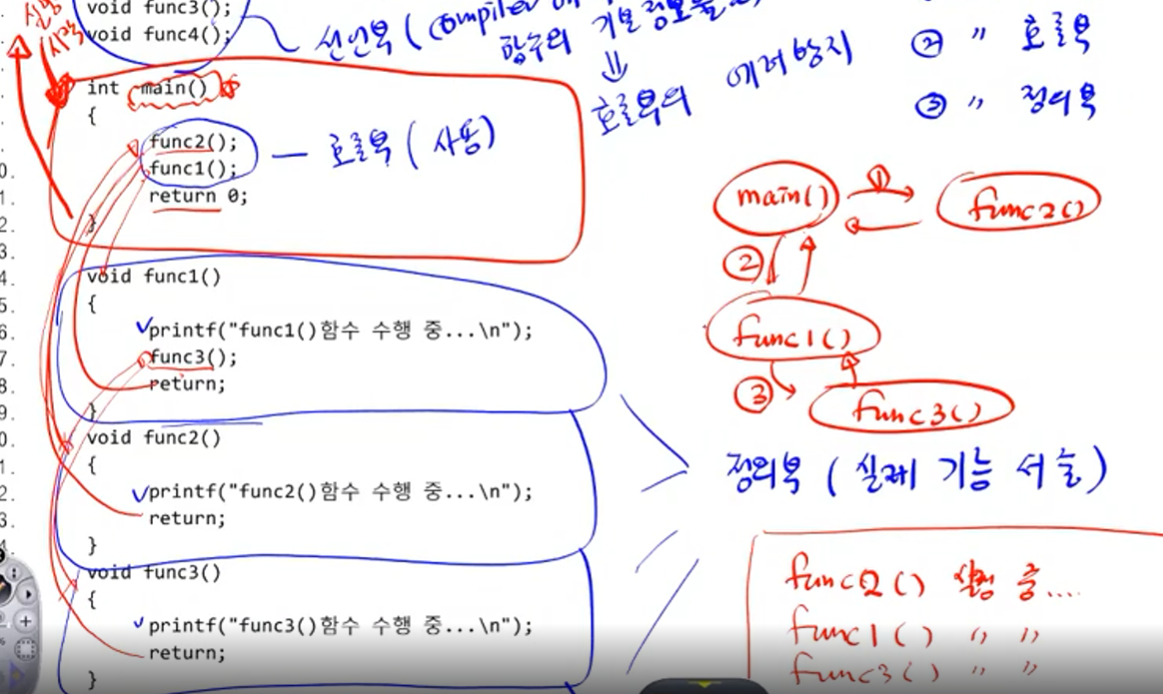 void func3();
void func4();
선언부 (compiler에
함수의 기본정보를
⇓
호출부의 에러방지
② " 호출부
③ " 정의부
int main()
{
func2();
func1();
return 0;
}
호출부 ( 사용)
main() ① func2()
②
func1()
③ func3()
void func1()
{
printf("func1()함수 수행 중...\n");
func3();
return;
}
void func2()
{
printf("func2()함수 수행 중...\n");
return;
}
정의부 ( 실제 기능 서술)
void func3()
{
printf("func3()함수 수행 중...\n");
return;
}
func2() 실행 중....
func1() " "
func3() " "